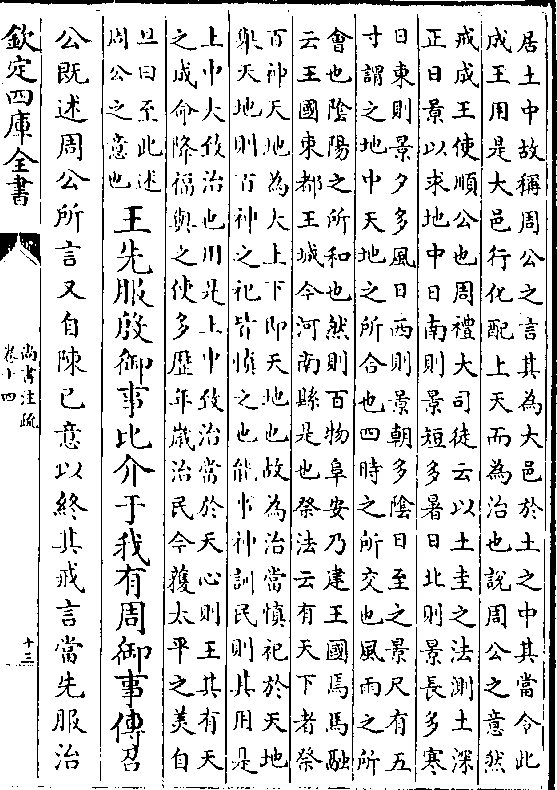 居土中故稱周公之言其為大邑於土之中其當令此
成王用是大邑行化配上天而為治也說周公之意然
戒成王使順公也周禮大司徒云以土圭之法測土深
正日景以求地中日南則景短多暑日北則景長多寒
日東則景夕多風日西則景朝多陰日至之景尺有五
寸謂之地中天地之所合也四時之所交也風雨之所
會也陰陽之所和也然則百物阜安乃建王國焉馬融
云王國東都王城今河南縣是也祭法云有天下者祭
百神天地為大上下即天地也故為治當慎祀於天地
舉天地則百神之祀皆慎之也能事神訓民則其用是
上中大致治也用是上中致治當於天心則王其有天
之成命降福與之使多歷年歲治民今獲太平之美自
旦曰至此述
周公之意也
王先服殷御事比介于我有周御事傳召
公既述周公所言又自陳已意以終其戒言當先服治
欽定四庫全書
尚書注疏
卷十四
十三